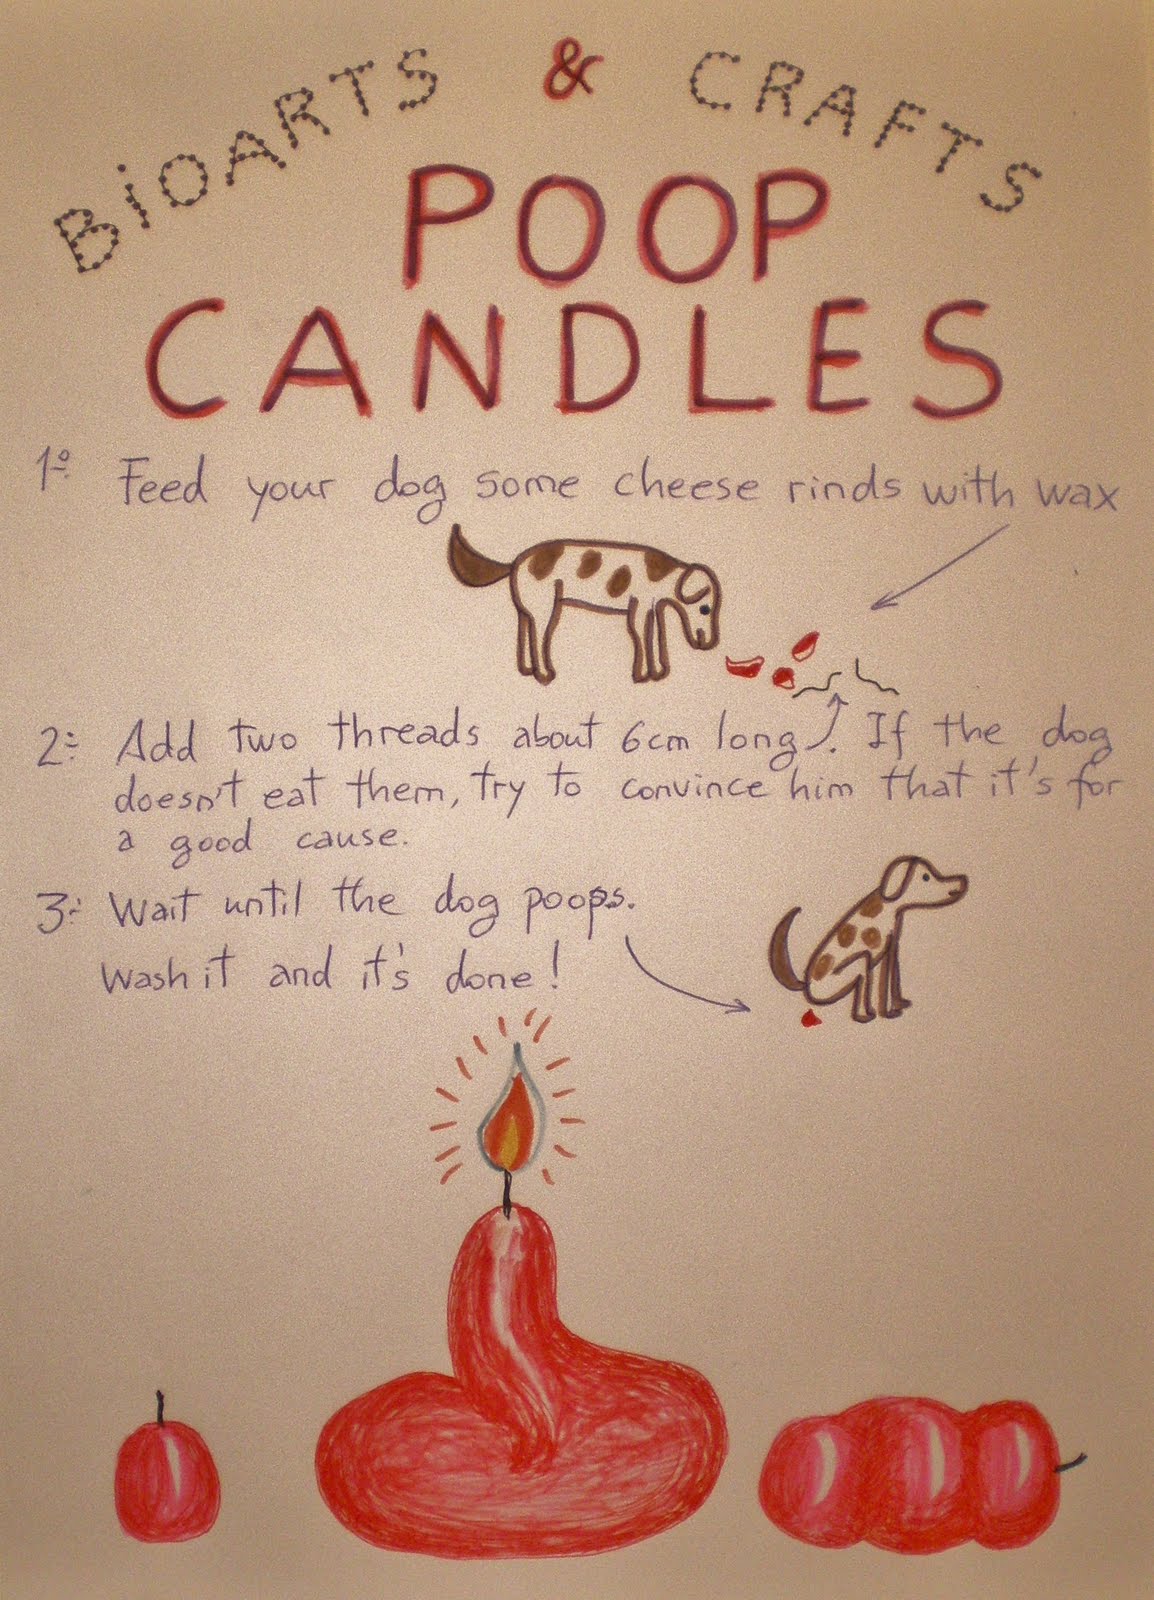 BiOARTS & CRAFTS
POOP
CANDLES
1º Feed your dog some cheese rinds with wax
2º Add two threads about 6cm long. If the dog
doesn't eat them, try to convince him that it's for
a good cause.
3º Wait until the dog poops.
Wash it and it's done!